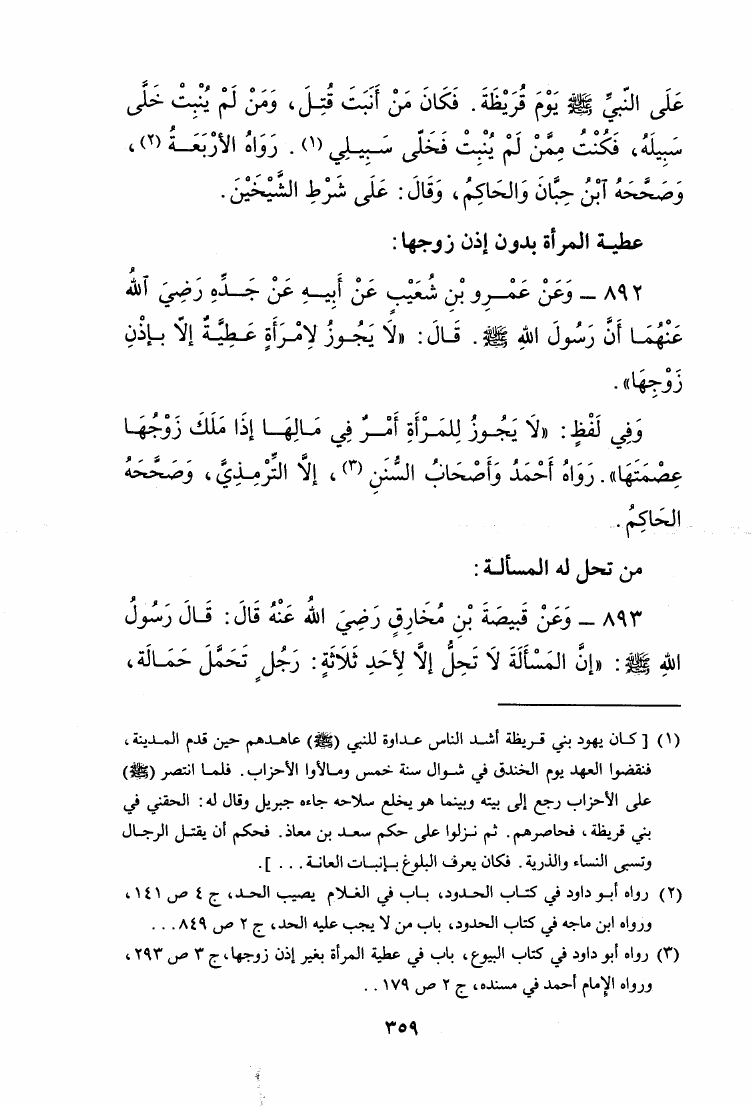 عَلَى النَّبِيِّ ﷺ يَوْمَ قُرَيْظَةَ. فَكَانَ مَنْ أَنْبَتَ قُتِلَ، وَمَنْ لَمْ يُنْبِتْ خَلَّى
سَبِيلَهُ، فَكُنْتُ مِمَّنْ لَمْ يُنْبِتْ فَخَلَّى سَبِيلِي (١). رَوَاهُ الأَرْبَعَةُ (٢)،
وَصَحَّحَهُ آبْنُ حِبَّانَ وَالحَاكِمُ، وَقَالَ: عَلَى شَرْطِ الشَّيْخَيْنِ.
عطية المرأة بدون إذن زوجها:
٨٩٢ ـ وَعَنْ عَمْرِو بْنِ شُعَيْبٍ عَنْ أَبِيهِ عَنْ جَدِّهِ رَضِيَ آللهُ
عَنْهُمَا أَنَّ رَسُولَ اللهِ ﷺ. قَالَ: «لَا يَجُوزُ لِامْرَأَةٍ عَطِيَّةٌ إلَّا بِإِذْنِ
زَوْجِهَا».
وَفِي لَفْظٍ: «لَا يَجُوزُ لِلمَرْأَةِ أَمْرٌ فِي مَالِهَا إذَا مَلَكَ زَوْجُهَا
عِصْمَتَهَا». رَوَاهُ أَحْمَدُ وَأَصْحَابُ السُّنَنِ (٣)، إلَّا التِّرْمِذِيَّ، وَصَحَّحَهُ
الحَاكِمُ.
من تحل له المسألة:
٨٩٣ ـ وَعَنْ قَبِيصَةَ بْنِ مُخَارِقٍ رَضِيَ اللهُ عَنْهُ قَالَ: قَالَ رَسُولُ
اللهِ ﷺ: «إنَّ المَسْأَلَةَ لَا تَحِلُّ إلَّا لِأَحَدِ ثَلَاثَةٍ: رَجُلٍ تَحَمَّلَ حَمَالَةً،
(١) [كان يهود بني قريظة أشد الناس عداوة للنبي (ﷺ) عاهدهم حين قدم المدينة،
فنقضوا العهد يوم الخندق في شوال سنة خمس ومالأوا الأحزاب. فلما انتصر (ﷺ)
على الأحزاب رجع إلى بيته وبينما هو يخلع سلاحه جاءه جبريل وقال له: الحقني في
بني قريظة، فحاصرهم. ثم نزلوا على حكم سعد بن معاذ. فحكم أن يقتل الرجال
وتسبى النساء والذرية. فكان يعرف البلوغ بإنبات العانة...].
(٢) رواه أبو داود في كتاب الحدود، باب في الغلام يصيب الحد، ج ٤ ص ١٤١،
ورواه ابن ماجه في كتاب الحدود، باب من لا يجب عليه الحد، ج ٢ ص ٨٤٩...
(٣) رواه أبو داود في كتاب البيوع، باب في عطية المرأة بغير إذن زوجها، ج ٣ ص ٢٩٣،
ورواه الإمام أحمد في مسنده، ج ٢ ص ١٧٩..
٣٥٩